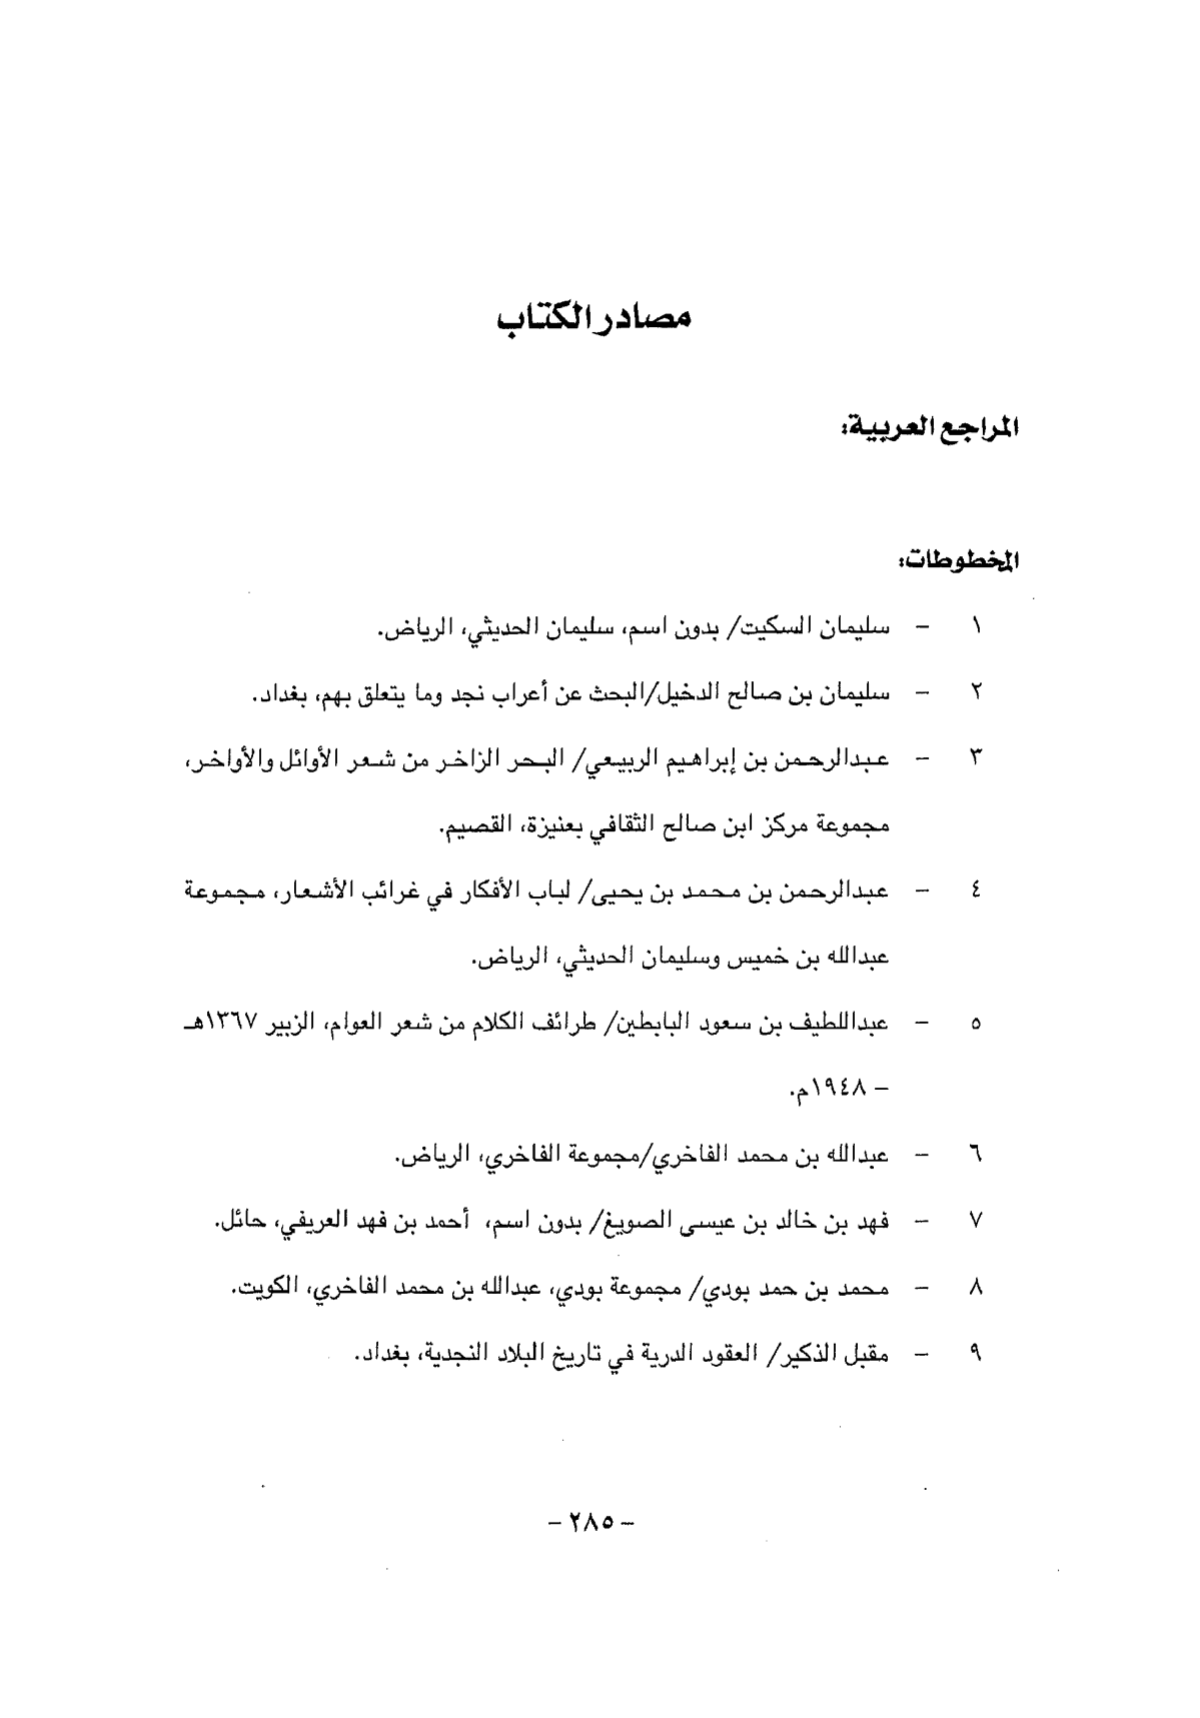 مصادر الكتاب
المراجع العربية:
المخطوطات:
١ – سليمان السكيت/ بدون اسم، سليمان الحديثي، الرياض.
٢ – سليمان بن صالح الدخيل/البحث عن أعراب نجد وما يتعلق بهم، بغداد.
٣ – عبدالرحمن بن إبراهيم الربيعي/ البحر الزاخر من شعر الأوائل والأواخر،
مجموعة مركز ابن صالح الثقافي بعنيزة، القصيم.
٤ – عبدالرحمن بن محمد بن يحيى/ لباب الأفكار في غرائب الأشعار، مجموعة
عبدالله بن خميس وسليمان الحديثي، الرياض.
٥ – عبداللطيف بن سعود البابطين/ طرائف الكلام من شعر العوام، الزبير ١٣٦٧هـ
– ١٩٤٨م.
٦ – عبدالله بن محمد الفاخري/مجموعة الفاخري، الرياض.
٧ – فهد بن خالد بن عيسى الصويغ/ بدون اسم، أحمد بن فهد العريفي، حائل.
٨ – محمد بن حمد بودي/ مجموعة بودي، عبدالله بن محمد الفاخري، الكويت.
٩ – مقبل الذكير/ العقود الدرية في تاريخ البلاد النجدية، بغداد.
– ٢٨٥ –